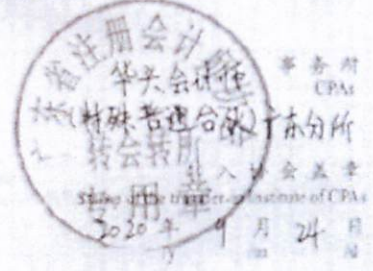 东省注册会计师
华兴会计师 事务所
CPAs
(特殊普通合伙)广东分所
转会转所
转入协会盖章
专用章
Stamp of the transfer-in Institute of CPAs
2020年 9月 24日
/y /m /d